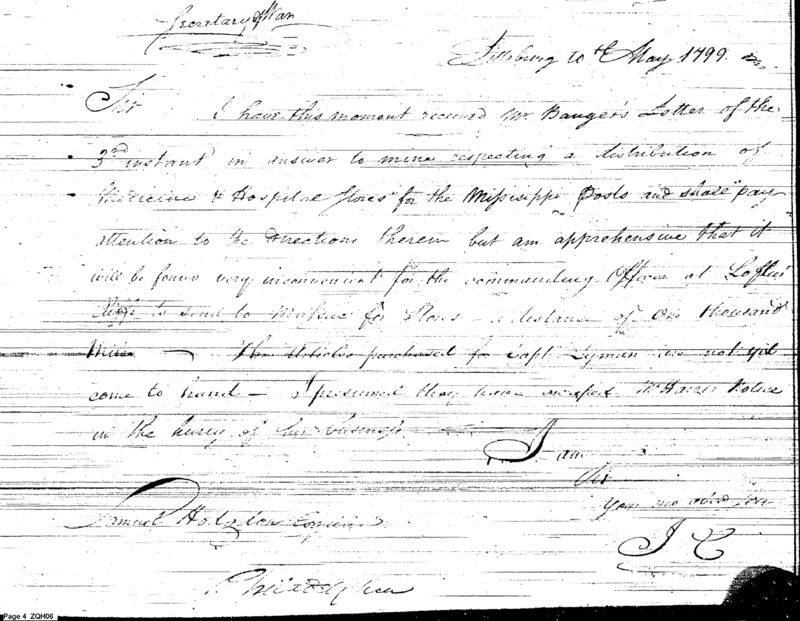 Secretary of War
Pittsburg 20th May 1799.
Sir
I have this moment received Mr. Banger's Letter of the
3rd instant in answer to mine respecting a distribution of
Medicine & Hospital Stores for the Missisippi Posts and shall pay
attention to the directions therein but am apprehensive that it
will be found very inconvenient for the commanding Officer at Loftus
to send to Makinac for Stores a distance of One thousand
Miles — The Articles purchased for Capt Lyman are not yet
come to hand — I presumed they have escaped Mr Harris Notice
in the hurry of his business
I am
Sir
Your mo obed Ser
I C
Samuel Hodgdon Esquire
Philadelphia
Page 4 ZQH06